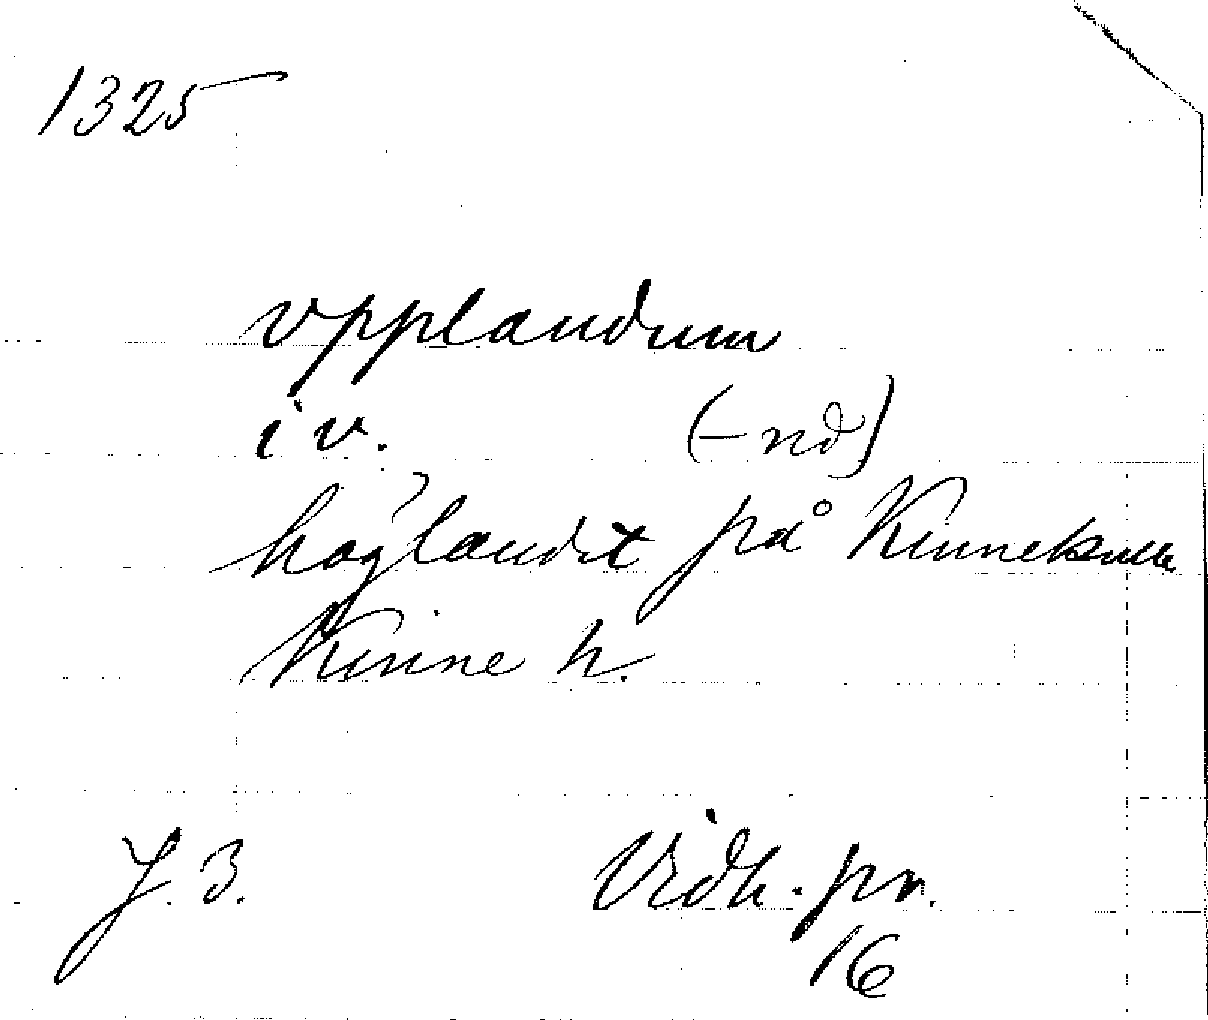 1325
vpplandum
i v. (-nd)
höglandet på Kinnekulle
Kinne h.
J. 3. Vidh. pr.
16